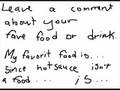 Leave a comment
about your
fave food or drink.
My favorite food is...
Since hot sauce isn't
a food... is...